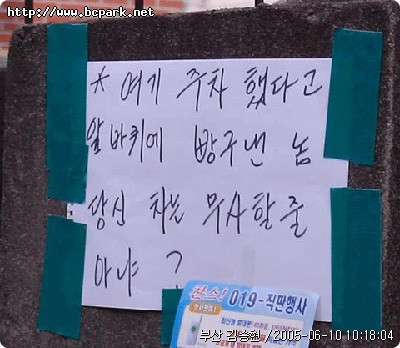 http://www.bcpark.net
* 여기 주차 했다고
앞바퀴에 빵구낸 놈
당신 차는 무사할 줄
아냐 ?
찬스! 019-직판행사
부산 김승원 / 2005-06-10 10:18:04